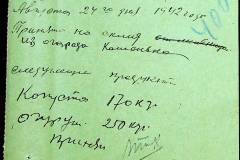 Августа 24го дня 1942 года
Принято на склад
из огорода Каменевка
следующие продукты
Капуста 170 кг.
Огурцы 250 кгр.
Принял
400